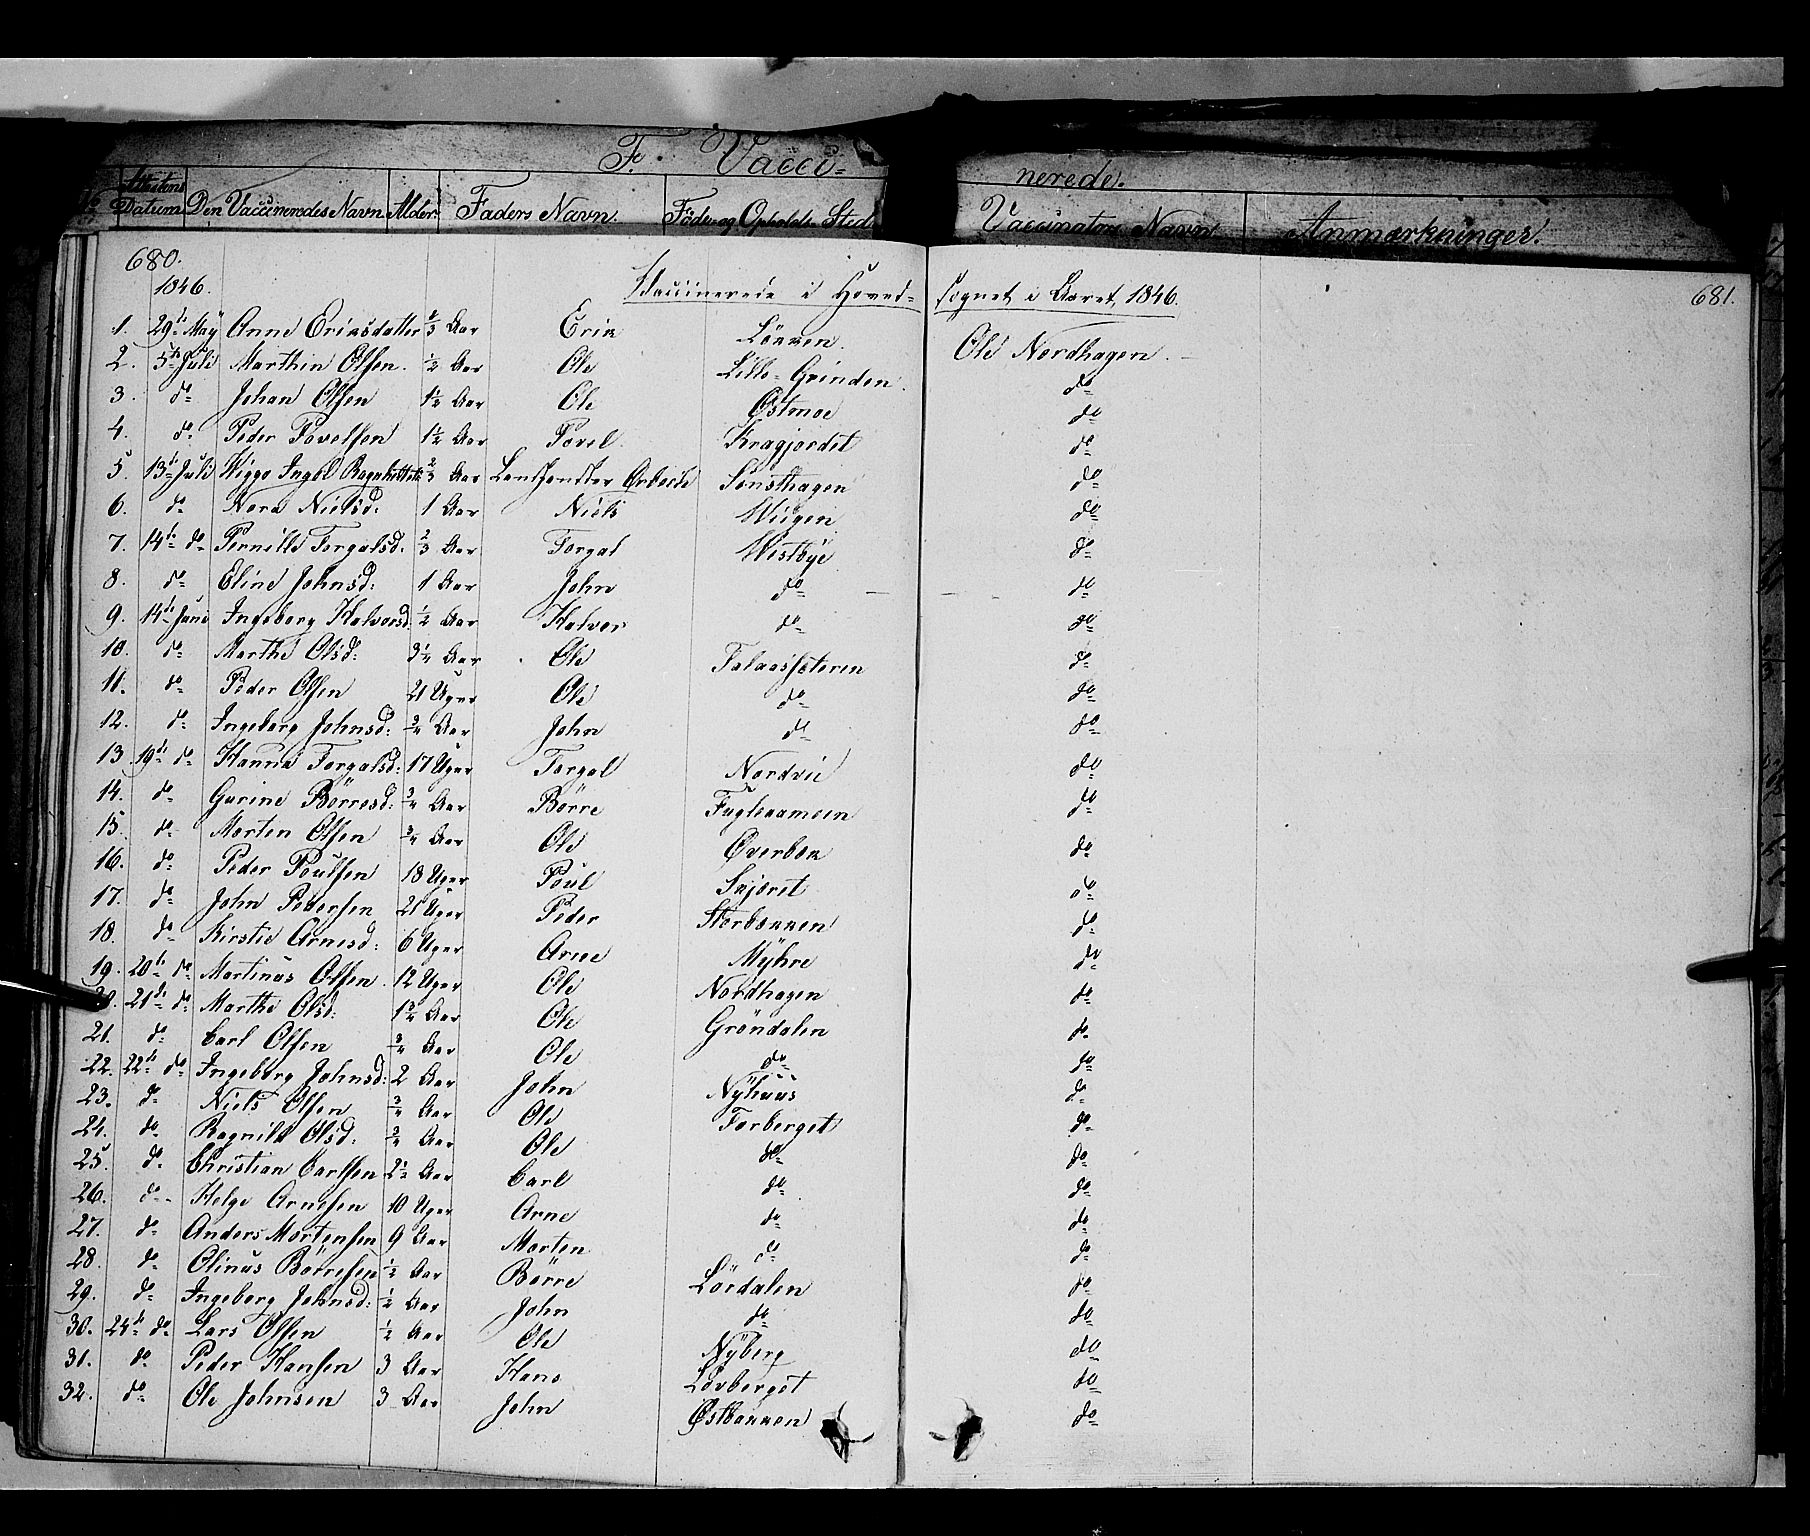 F. Vacci- nerede.
No Attestens Datum Den Vaccineredes Navn Alder Faders Navn. Föde- og Opholds-Sted Vaccinators Navn Anmærkninger.
680. 681.
1846. Vaccinerede i Hoved- sognet i Aaret 1846.
1. 29de May Anne Eriksdatter 2/3 Aar Erik Lökken. Ole Nordhagen.
2. 5te Juli Marthin Olsen. 1/2 Aar Ole Lille-Grinden do
3. do Johan Olsen 1 1/2 Aar Ole Østmoe do
4. do Peder Povelsen 1 1/2 Aar Povel Kragjordet do
5. 13de Juli Wiggo Ingol 2/3 Aar Sønsthagen do
6. do Nora Nielsd: 1 Aar Niels Wiigen do
7. 14de do Pernille Torgalsd: 2/3 Aar Torgal Westbye do
8. do Eline Johnsd: 1 Aar John do do
9. 14de Juni Ingeborg Halvorsd: 1/2 Aar Halvor do do
10. do Marthe Olsd: 3 1/4 Aar Ole Falaassæteren do
11. do Peder Olsen 21 Uger Ole do do
12. do Ingeborg Johnsd: 3/4 Aar John do do
13. 19de do Hanna Torgalsd: 17 Uger Torgal Nordvie do
14. do Gurine Börresd: 3/4 Aar Börre Fugleaamoen do
15. do Morten Olsen 3/4 Aar Ole Øverbek do
16. do Peder Poulsen 18 Uger Poul Skjæret do
17. do John Pedersen 21 Uger Peder Storbækken do
18. do Kirstie Arnesd: 6 Uger Arne Myhre do
19. 20de do Martinus Olsen. 12 Uger Ole Nordhagen do
20. 21de do Marthe Olsd: 1 3/4 Aar Ole Gröndalen do
21. do Carl Olsen 3/4 Aar Ole do do
22. 22de do Ingeborg Johnsd: 2 Aar John Nyhuus do
23. do Niels Olsen 3/4 Aar Ole Forberget do
24. do Ragnild Olsd: 3/4 Aar Ole do do
25. do Christian Carlsen 2 1/2 Aar Carl do do
26. do Helge Arnesen 10 Uger Arne do do
27. do Anders Mortensen 9 Aar Morten do do
28. do Olinus Börresen 1/2 Aar Börre Lördalen do
29. do Ingeborg Johnsd: 1/2 Aar John do do
30. 24de do Lars Olsen 1/2 Aar Ole Nyberg do
31. do Peder Hansen 3 Aar Hans Lövberget do
32. do Ole Johnsen 3 Aar John Østbækken do